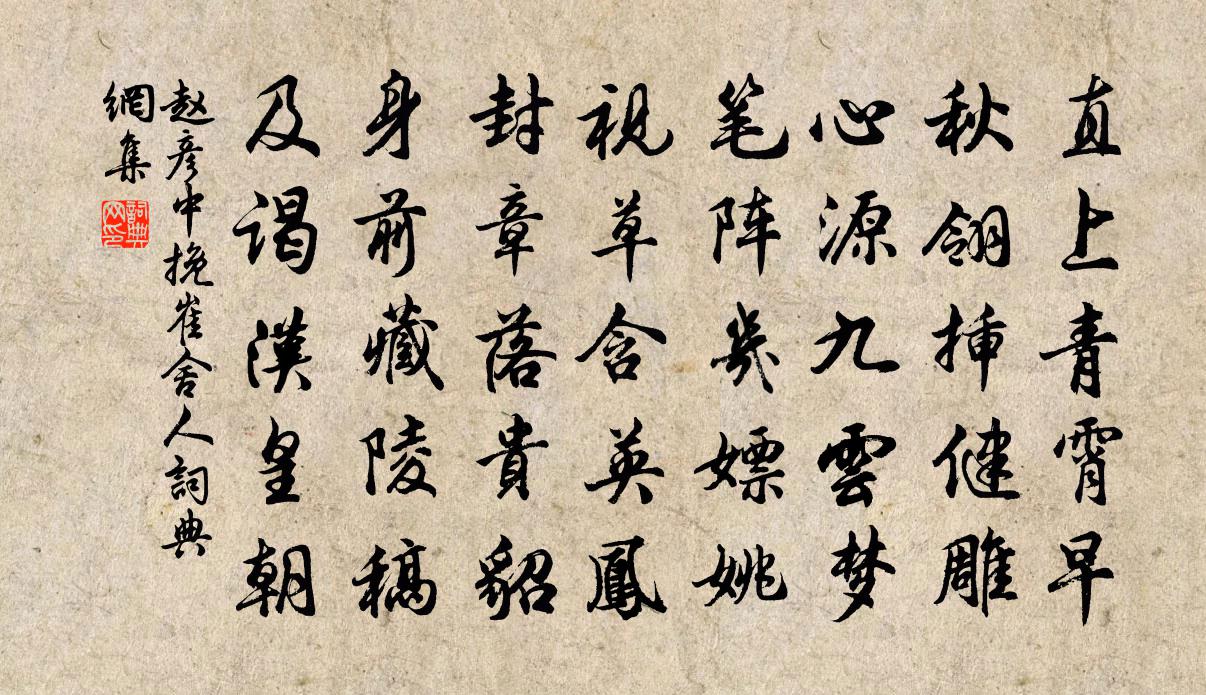 直上青霄早
秋翎挿健雕
心源九雲梦
笔阵幾嫖姚
視草含英鳳
封章落貴貂
身前藏陵稿
及谒漢皇朝
赵彦中挽崔舍人詞典
網集
詞典
网印